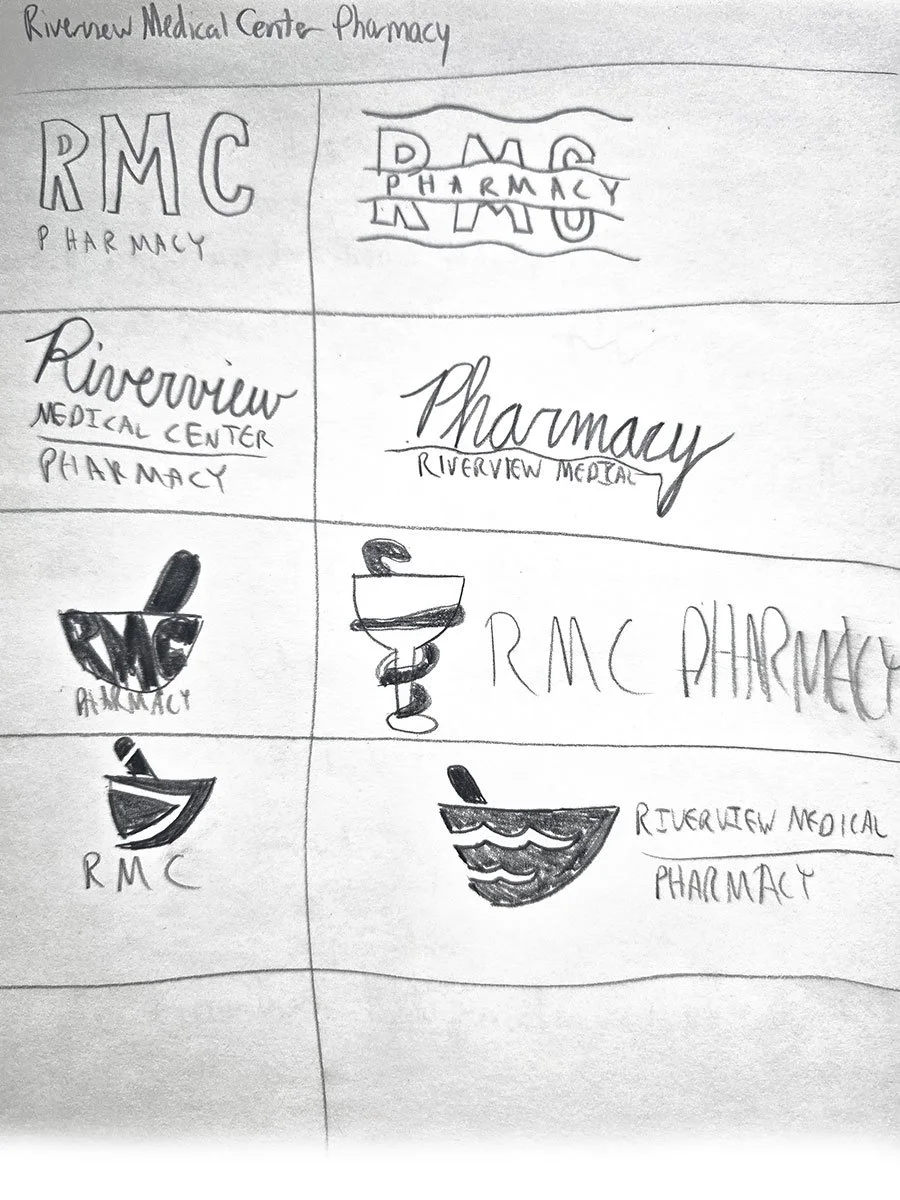 Riverview Medical Center Pharmacy
RMC
PHARMACY
RMC
PHARMACY
Riverview
MEDICAL CENTER
PHARMACY
Pharmacy
RIVERVIEW MEDICAL
RMC
PHARMACY
RMC PHARMACY
RMC
RIVERVIEW MEDICAL
PHARMACY